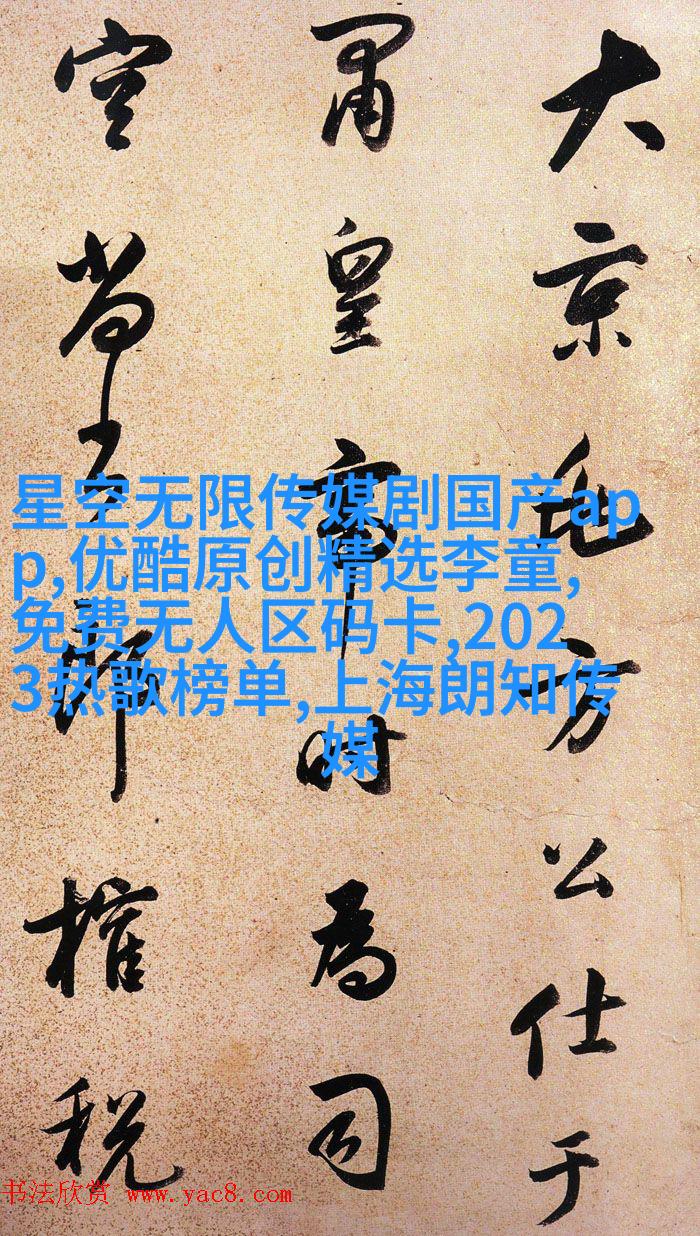 大京兆方公仕于
肅皇帝时為司
空尚书郎榷税
星空无限传媒剧国产ap
p,优酷原创精选李童,
免费无人区码卡,202
3热歌榜单,上海朗知传
媒
书法欣赏 www.yac8.com